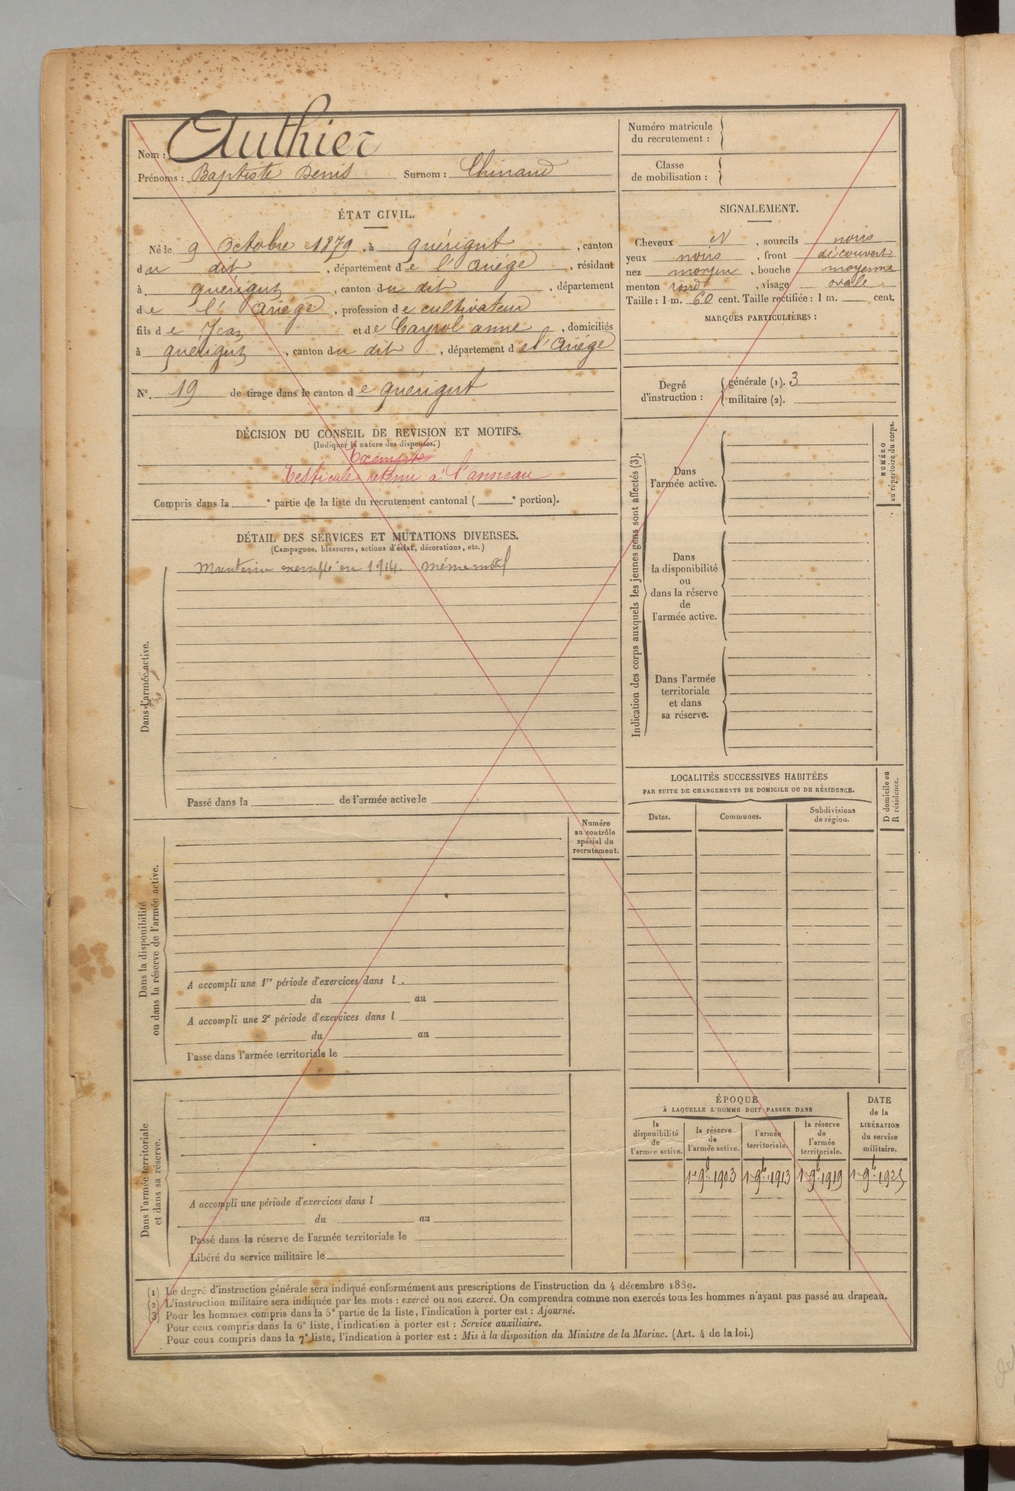 Nom : Authier
Prénoms : Baptiste Denis Surnom : Chinaud
ÉTAT CIVIL.
Né le 9 Octobre 1879, à quérigut, canton
du dit, département de l'Ariège, résidant
à quérigut, canton du dit, département
de l'Ariège, profession de cultivateur
fils de Jean et de Cayrol anne, domiciliés
à quérigut, canton du dit, département de l'Ariège
N°. 19 de tirage dans le canton de quérigut
DÉCISION DU CONSEIL DE REVISION ET MOTIFS.
(Indiquer la nature des dispenses.)
Exempté
testicule retenu à l'anneau
Compris dans la ° partie de la liste du recrutement cantonal ( ° portion).
DÉTAIL DES SERVICES ET MUTATIONS DIVERSES.
(Campagnes, blessures, actions d'éclat, décorations, etc.)
Maintenu exempté en 1914. même motif
Dans l'armée active.
Passé dans la de l'armée active le
Numéro
au contrôle
spécial du
recrutement.
Dans la disponibilité
ou dans la réserve de l'armée active.
A accompli une 1re période d'exercices dans l
du au
A accompli une 2e période d'exercices dans l
du au
Passé dans l'armée territoriale le
Dans l'armée territoriale
et dans sa réserve.
A accompli une période d'exercices dans l
du au
Passé dans la réserve de l'armée territoriale le
Libéré du service militaire le
Numéro matricule
du recrutement :
Classe
de mobilisation :
SIGNALEMENT.
Cheveux et, sourcils noirs
yeux noirs, front découvert
nez moyen, bouche moyenne
menton rond, visage ovale
Taille : 1 m. 60 cent. Taille rectifiée : 1 m. cent.
MARQUES PARTICULIÈRES :
Degré
d'instruction :
générale (1). 3
militaire (2).
Indication des corps auxquels les jeunes gens sont affectés (3).
NUMÉRO
au répertoire du corps.
Dans
l'armée active.
Dans
la disponibilité
ou
dans la réserve
de
l'armée active.
Dans l'armée
territoriale
et dans
sa réserve.
LOCALITÉS SUCCESSIVES HABITÉES
PAR SUITE DE CHANGEMENTS DE DOMICILE OU DE RÉSIDENCE.
Dates. Communes. Subdivisions
de région.
D domicile ou
R résidence.
ÉPOQUE
À LAQUELLE L'HOMME DOIT PASSER DANS
la
disponibilité
de
l'armée active.
la réserve
de
l'armée active.
l'armée
territoriale.
la réserve
de
l'armée
territoriale.
DATE
de la
LIBÉRATION
du service
militaire.
1er 9bre 1903 1er 9bre 1913 1er 9bre 1919 1er 9bre 1925
(1) Le degré d'instruction générale sera indiqué conformément aux prescriptions de l'instruction du 4 décembre 1889.
(2) L'instruction militaire sera indiquée par les mots : exercé ou non exercé. On comprendra comme non exercés tous les hommes n'ayant pas passé au drapeau.
(3) Pour les hommes compris dans la 5e partie de la liste, l'indication à porter est : Ajourné.
Pour ceux compris dans la 6e liste, l'indication à porter est : Service auxiliaire.
Pour ceux compris dans la 7e liste, l'indication à porter est : Mis à la disposition du Ministre de la Marine. (Art. 4 de la loi.)